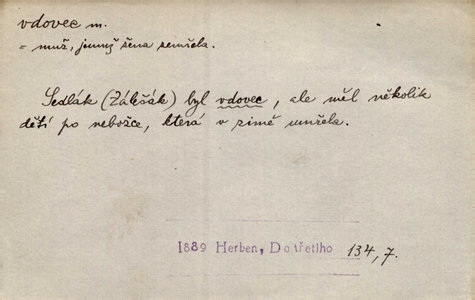 vdovec m.
= muž, jemuž žena zemřela.
Sedlák (Zálešák) byl vdovec, ale měl několik
dětí po nebožce, která v zimě umřela.
1889 Herben, Do třetího 134,7.